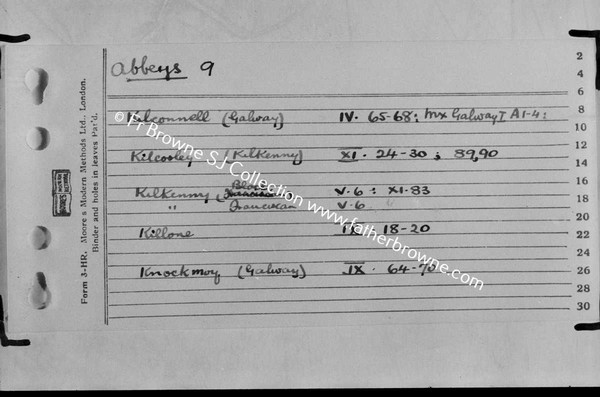 Abbeys 9
Kilconnell (Galway) IV. 65-68; Mx Galway I A1-4;
Kilcooley (Kilkenny) XI. 24-30; 89,90
Kilkenny V.6; XI.83
" Franciscan V.6
Killone 18-20
Knockmoy (Galway) IX. 64-70
2
4
6
8
10
12
14
16
18
20
22
24
26
28
30
Form 3-HR. Moore's Modern Methods Ltd., London.
Binder and holes in leaves Pat'd.
© Fr Browne SJ Collection www.fatherbrowne.com